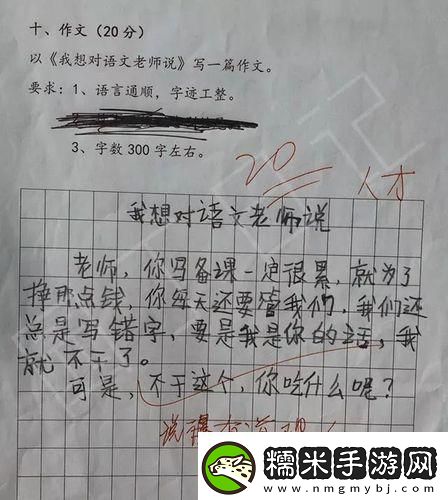 十、作文（20分）
以《我想对语文老师说》写一篇作文。
要求：1、语言通顺，字迹工整。
3、字数300字左右。
20
人才
我想对语文老师说
老师，你写备课一定很累，就为了
挣那点钱，你每天还要管我们，我们还
总是写错字，要是我是你的话，我
就不干了。
可是，不干这个，你吃什么呢？
说得有道理
糯米手游网
www.nmgmybj.com